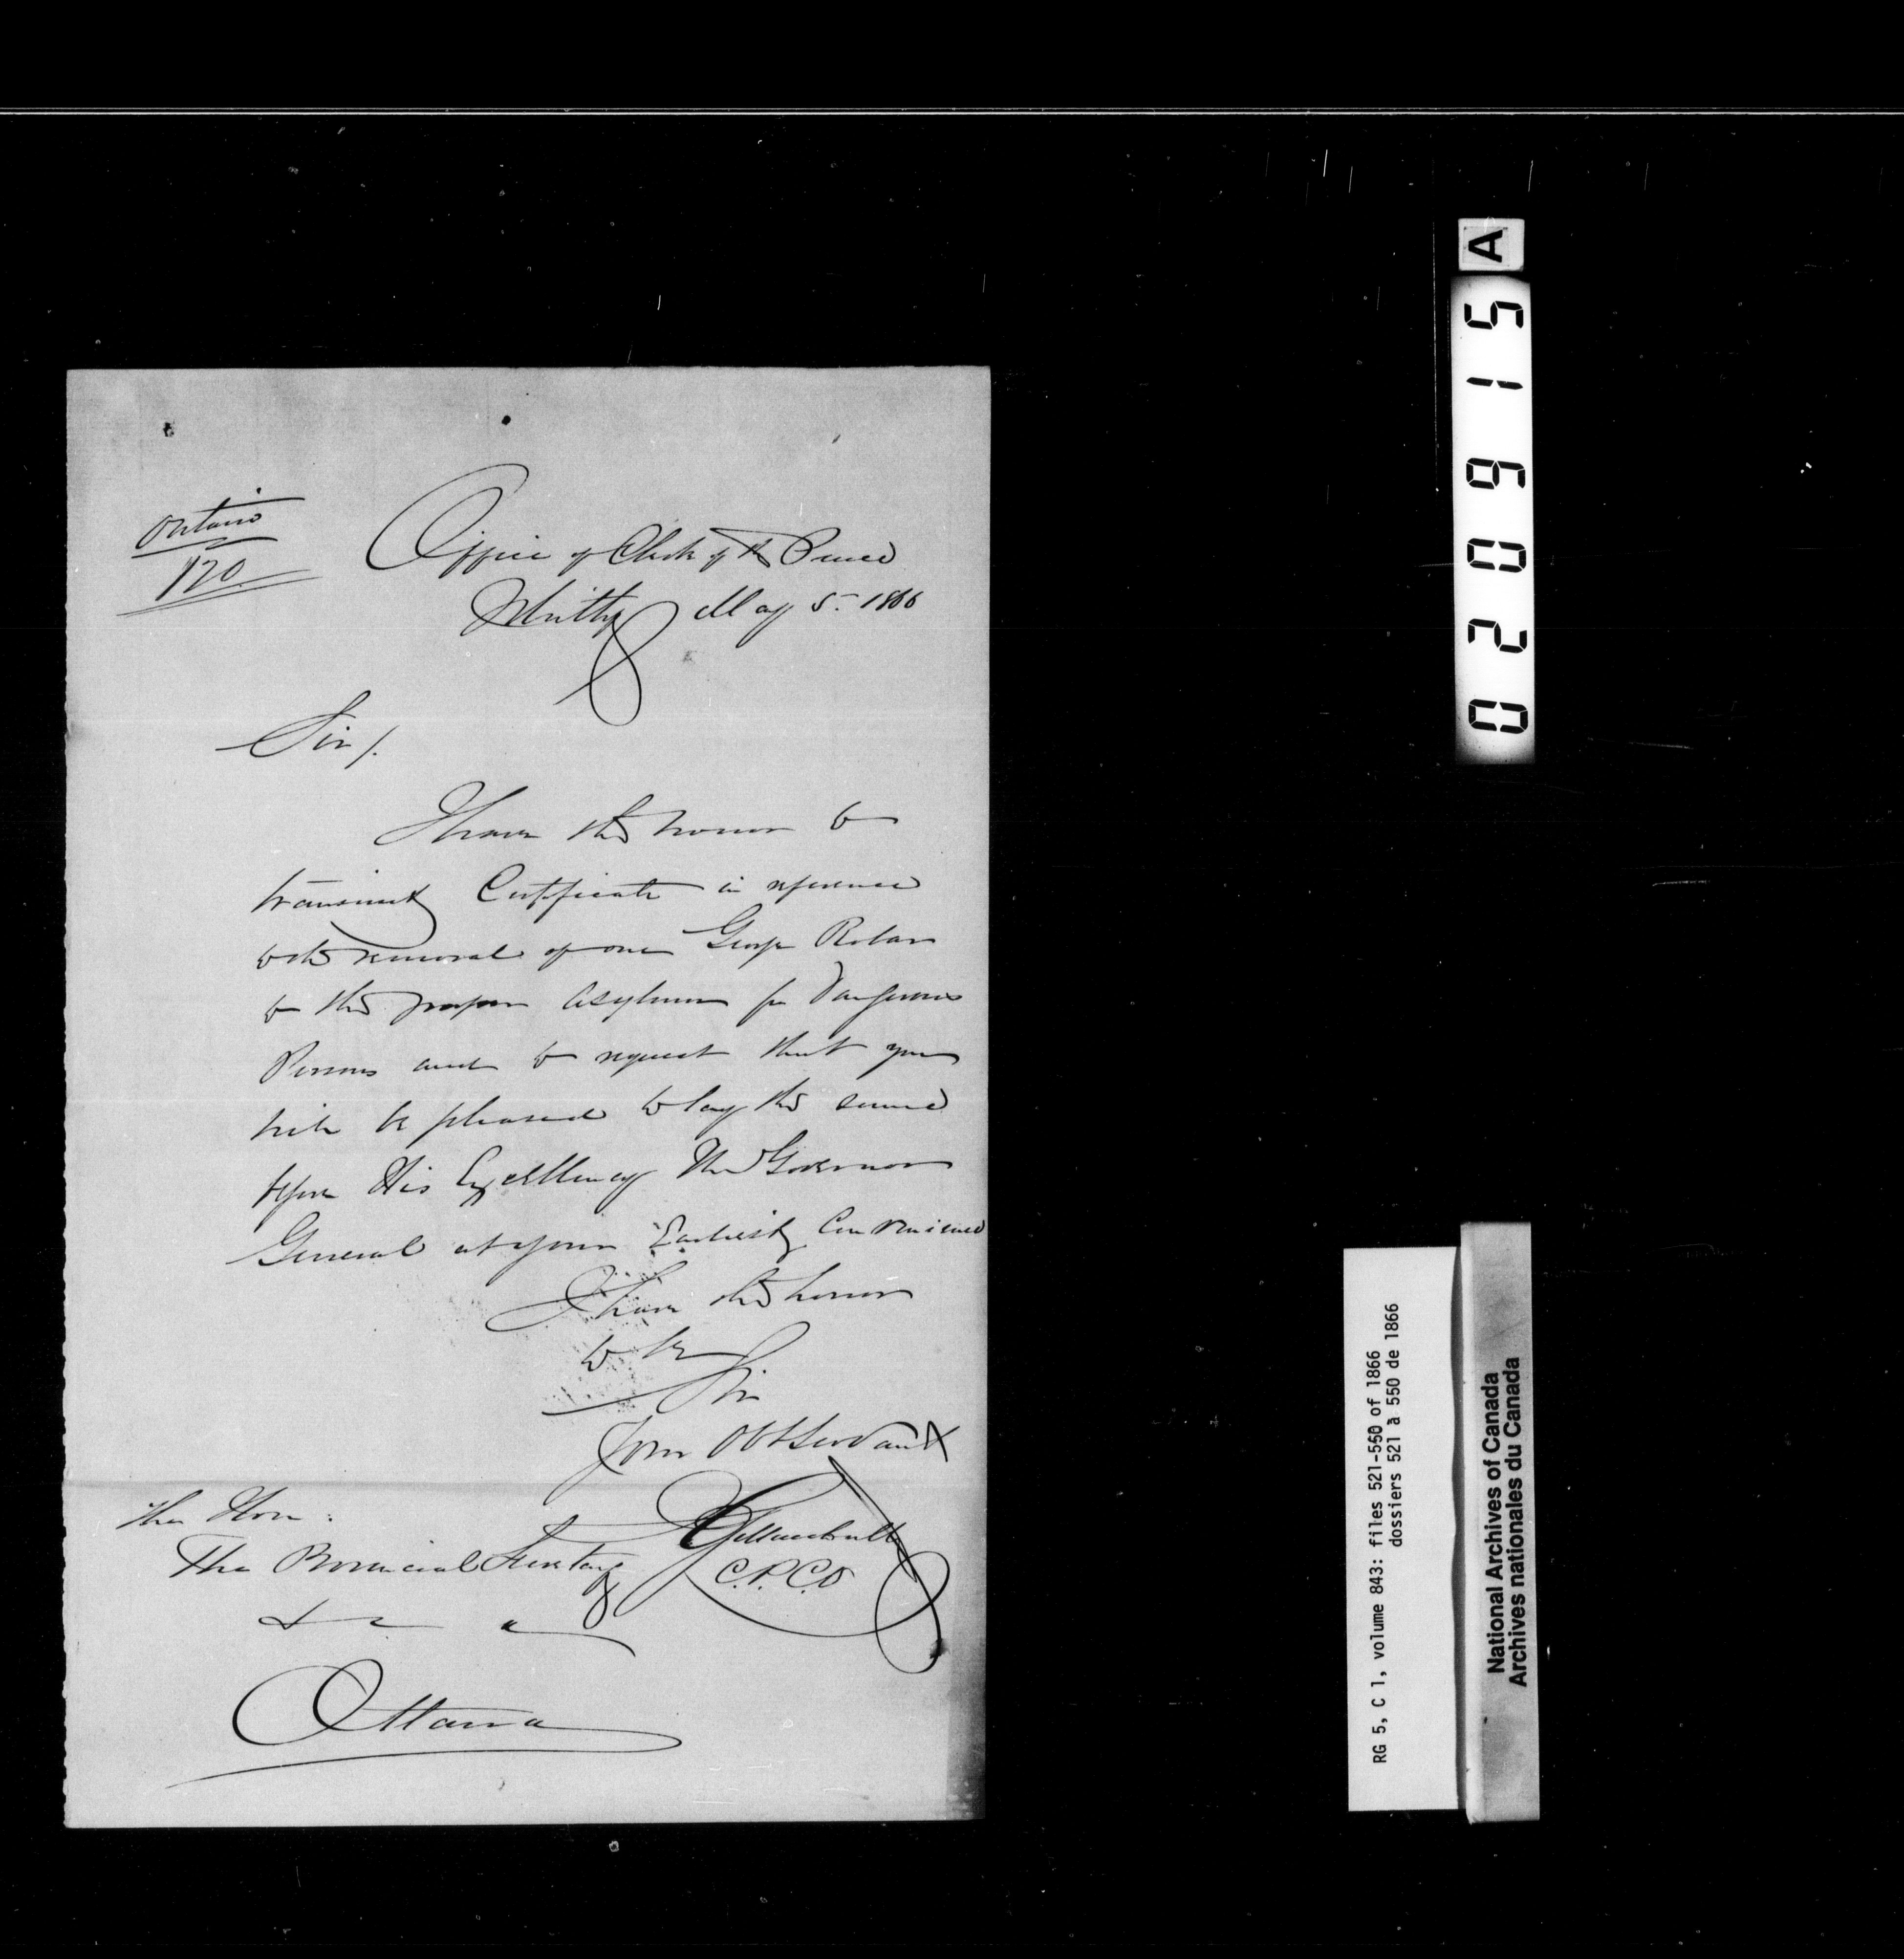 Ontario
120
Office of Clerk of the Peace
Whitby May 5. 1866
Sir/.
I have the honor to
transmit Certificate in reference
to the removal of one George
to the proper Asylum for Dangerous
Persons and to request that you
will be pleased to lay the same
before His Excellency The Governor
General at your Earliest Convenience
I have the honor
to be
Sir
Your Obt Servant
C.P.C.O
The Hon:
The Provincial Secretary
Ottawa
A
020915
RG 5, C 1, volume 843: files 521-550 of 1866
dossiers 521 à 550 de 1866
National Archives of Canada
Archives nationales du Canada